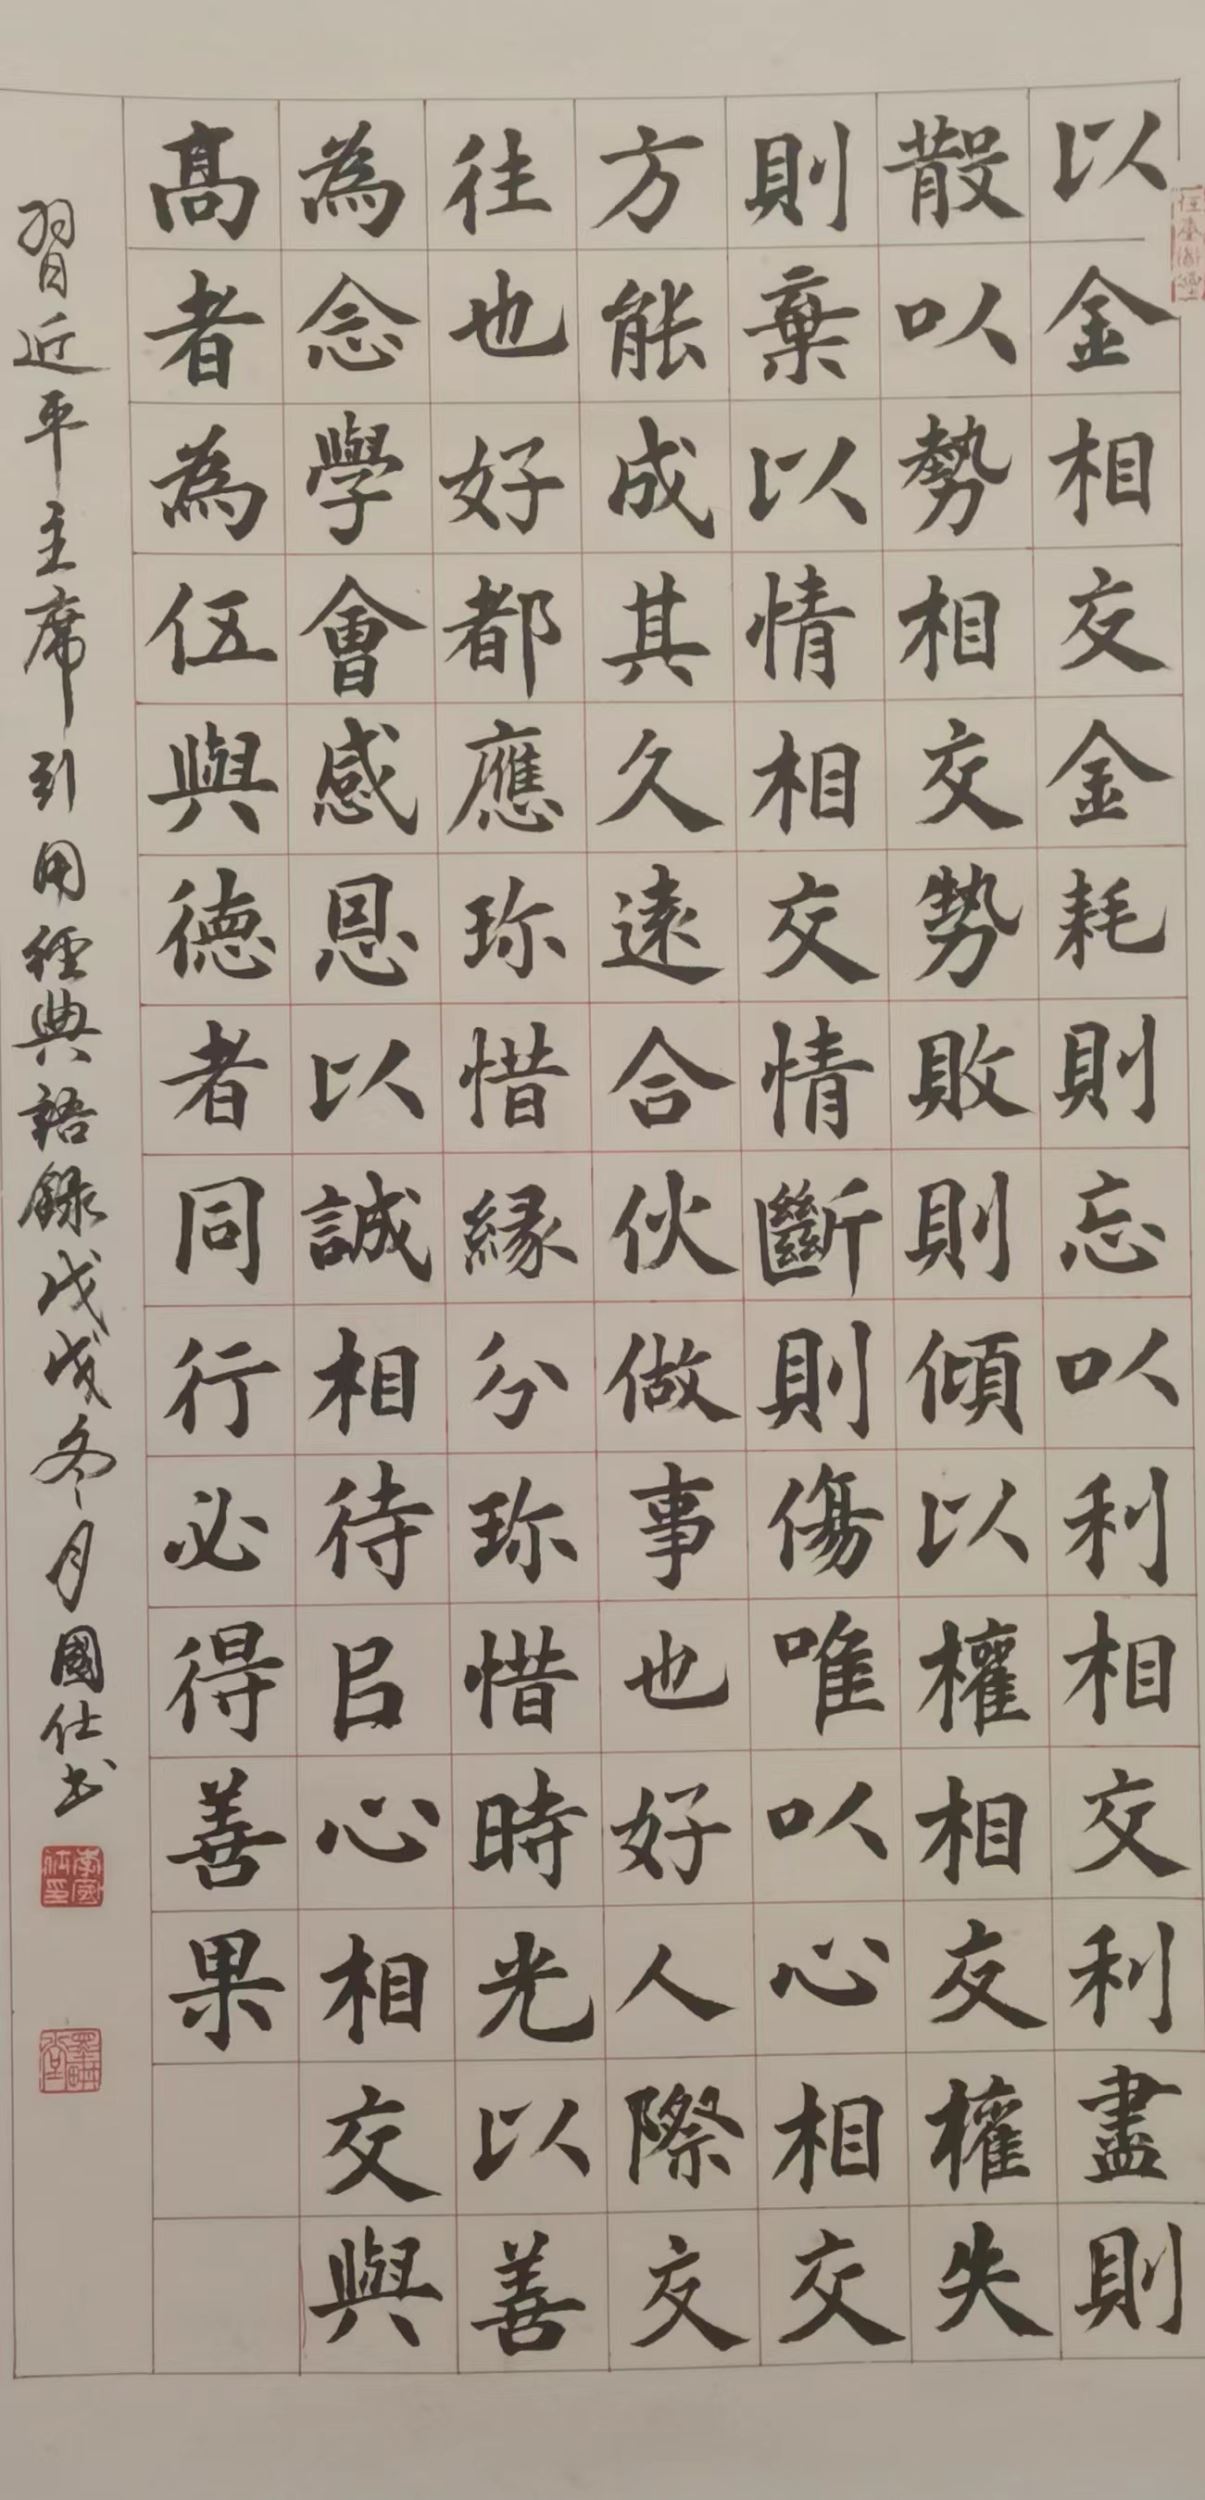 以金相交金耗則忘以利相交利盡則
散以勢相交勢敗則傾以權相交權失
則棄以情相交情斷則傷唯以心相交
方能成其久遠合伙做事也好人際交
往也好都應珍惜緣分珍惜時光以善
為念學會感恩以誠相待㠯心相交與
高者為伍與德者同行必得善果
習近平主席引用經典語錄戊戌冬月國仕书